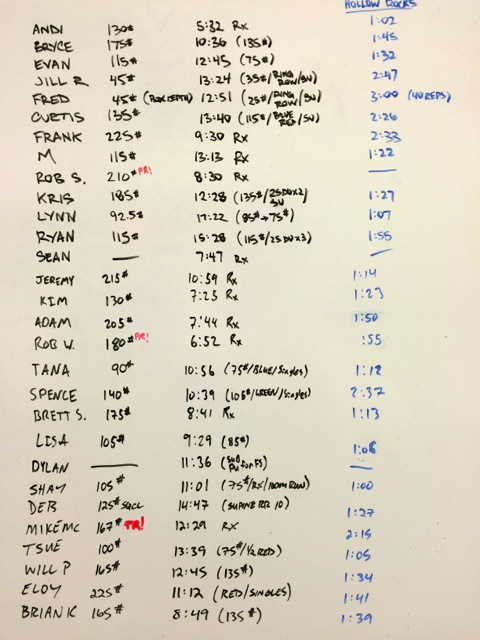 HOLLOW ROCKS
ANDI 130# 5:32 Rx 1:02
BRYCE 175# 10:36 (135#) 1:45
EVAN 115# 12:45 (75#) 1:32
JILL R 45# 13:24 (35#/RING ROW/SU) 2:47
FRED 45# (BOX DEPTH) 12:51 (25#/RING ROW/SU) 3:00 (40 REPS)
CURTIS 135# 13:40 (115#/BLUE /SU) 2:26
FRANK 225# 9:30 Rx 2:33
M 115# 13:13 Rx 1:22
ROB S. 210# PR! 8:30 Rx —
KRIS 185# 12:28 (135#/25DUx2/SU) 1:27
LYNN 92.5# 17:22 (85#→75#) 1:07
RYAN 115# 15:28 (115#/25DUx3) 1:55
SEAN — 7:47 Rx —
JEREMY 215# 10:59 Rx 1:14
KIM 130# 7:25 Rx 1:23
ADAM 205# 7:44 Rx 1:50
ROB W. 180# PR! 6:52 Rx :55
TANA 90# 10:56 (75#/BLUE/Singles) 1:12
SPENCE 140# 10:39 (105#/GREEN/Singles) 2:37
BRETT S. 175# 8:41 Rx 1:13
LISA 105# 9:29 (85#) 1:06
DYLAN — 11:36 (SUB for FS) —
SHAY 105# 11:01 (75#/RX/100M RUN) 1:00
DEB 125# SQCL 14:47 (SUPINE RR 10) 1:27
MIKE MC 167# PR! 12:29 RX 2:15
TSUE 100# 13:39 (75#/1/2 RED) 1:05
WILL P 165# 12:45 (135#) 1:34
ELOY 225# 11:12 (RED/SINGLES) 1:41
BRIAN K 165# 8:49 (135#) 1:39